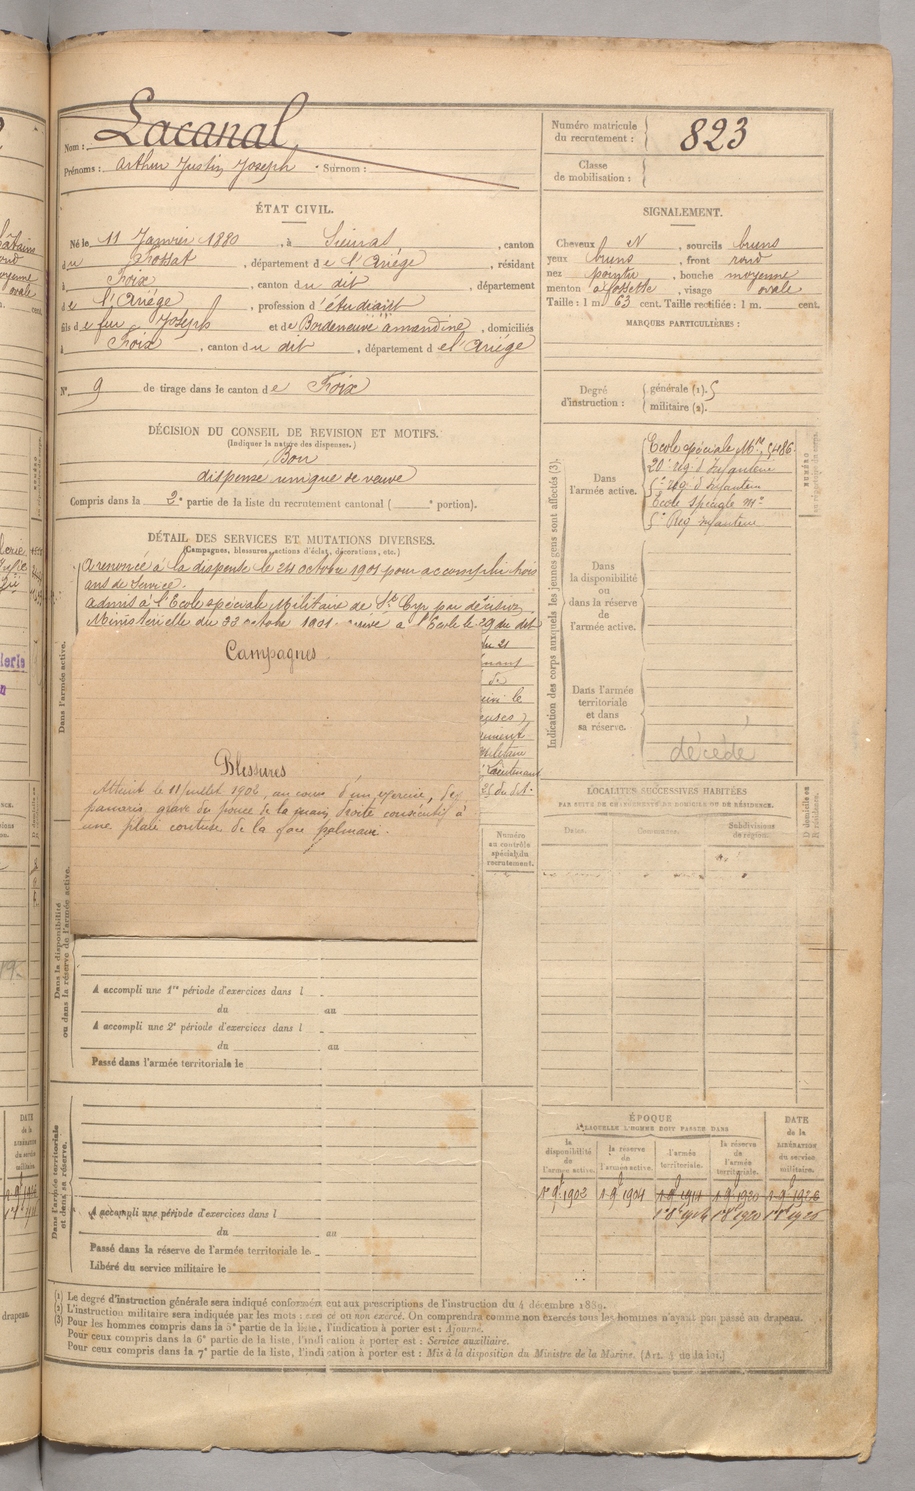 Nom : Lacanal
Prénoms : Arthur Justin Joseph Surnom :
Numéro matricule du recrutement : 823
Classe de mobilisation :
ÉTAT CIVIL.
Né le 11 Janvier 1880, à Sieuras, canton
du Fossat, département de l'Ariége, résidant
à Foix, canton du dit, département
de l'Ariége, profession d'étudiant
fils de feu Joseph et de Bordeneuve amandine, domiciliés
à Foix, canton du dit, département de l'Ariége
N° 9 de tirage dans le canton de Foix
SIGNALEMENT.
Cheveux N, sourcils bruns
yeux bruns, front rond
nez pointu, bouche moyenne
menton à fossette, visage ovale
Taille : 1 m. 63 cent. Taille rectifiée : 1 m. cent.
MARQUES PARTICULIÈRES :
Degré d'instruction : générale (1). 5
militaire (2).
DÉCISION DU CONSEIL DE REVISION ET MOTIFS.
(Indiquer la nature des dispenses.)
Bon
dispense unique de veuve
Compris dans la 2e partie de la liste du recrutement cantonal ( e portion).
DÉTAIL DES SERVICES ET MUTATIONS DIVERSES.
(Campagnes, blessures, actions d'éclat, décorations, etc.)
A renoncé à la dispense le 24 octobre 1901 pour accomplir trois
ans de service.
admis à l'Ecole spéciale Militaire de St Cyr par décision
Ministerielle du octobre 1901. arrivé à l'Ecole le 29 du dit
du 21
de
le
Militaire
Lieutenant
Campagnes
Blessures
Atteint le 11 juillet 1902, au cours d'un exercice, de
panaris grave du pouce de la main droite consécutif à
une plaie contuse de la face palmaire.
Dans l'armée active.
Dans la disponibilité
ou dans la réserve de l'armée active.
Dans l'armée territoriale
et dans sa réserve.
Numéro
au contrôle
spécial du
recrutement.
A accompli une 1re période d'exercices dans l
du au
A accompli une 2e période d'exercices dans l
du au
Passé dans l'armée territoriale le
A accompli une période d'exercices dans l
du au
Passé dans la réserve de l'armée territoriale le
Libéré du service militaire le
Indication des corps auxquels les jeunes gens sont affectés (3).
Dans
l'armée active.
Ecole spéciale Mre
20e rég d'Infanterie
5e rég d'Infanterie
Ecole spéciale Mre
5e Reg Infanterie
Dans
la disponibilité
ou
dans la réserve
de
l'armée active.
Dans l'armée
territoriale
et dans
sa réserve.
décédé
LOCALITÉS SUCCESSIVES HABITÉES
PAR SUITE DE CHANGEMENTS DE DOMICILE OU DE RÉSIDENCE.
Dates.
Communes.
Subdivisions
de région.
D. domicile ou
R. résidence.
ÉPOQUE
À LAQUELLE L'HOMME DOIT PASSER DANS
la
disponibilité
de
l'armée active.
la réserve
de
l'armée active.
l'armée
territoriale.
la réserve
de
l'armée
territoriale.
DATE
de la
LIBÉRATION
du service
militaire.
1er 9bre 1902 1.9bre 1904 1.9bre 1914 1.9bre 1920 1.9bre 1926
1er 8bre 1914 1er 8bre 1920 1er 8bre 1926
(1) Le degré d'instruction générale sera indiqué conformément aux prescriptions de l'instruction du 4 décembre 1889.
(2) L'instruction militaire sera indiquée par les mots : exercé ou non exercé. On comprendra comme non exercés tous les hommes n'ayant pas passé au drapeau.
(3) Pour les hommes compris dans la 5e partie de la liste, l'indication à porter est : Ajourné.
Pour ceux compris dans la 6e partie de la liste, l'indication à porter est : Service auxiliaire.
Pour ceux compris dans la 7e partie de la liste, l'indication à porter est : Mis à la disposition du Ministre de la Marine. (Art. 4 de la loi.)